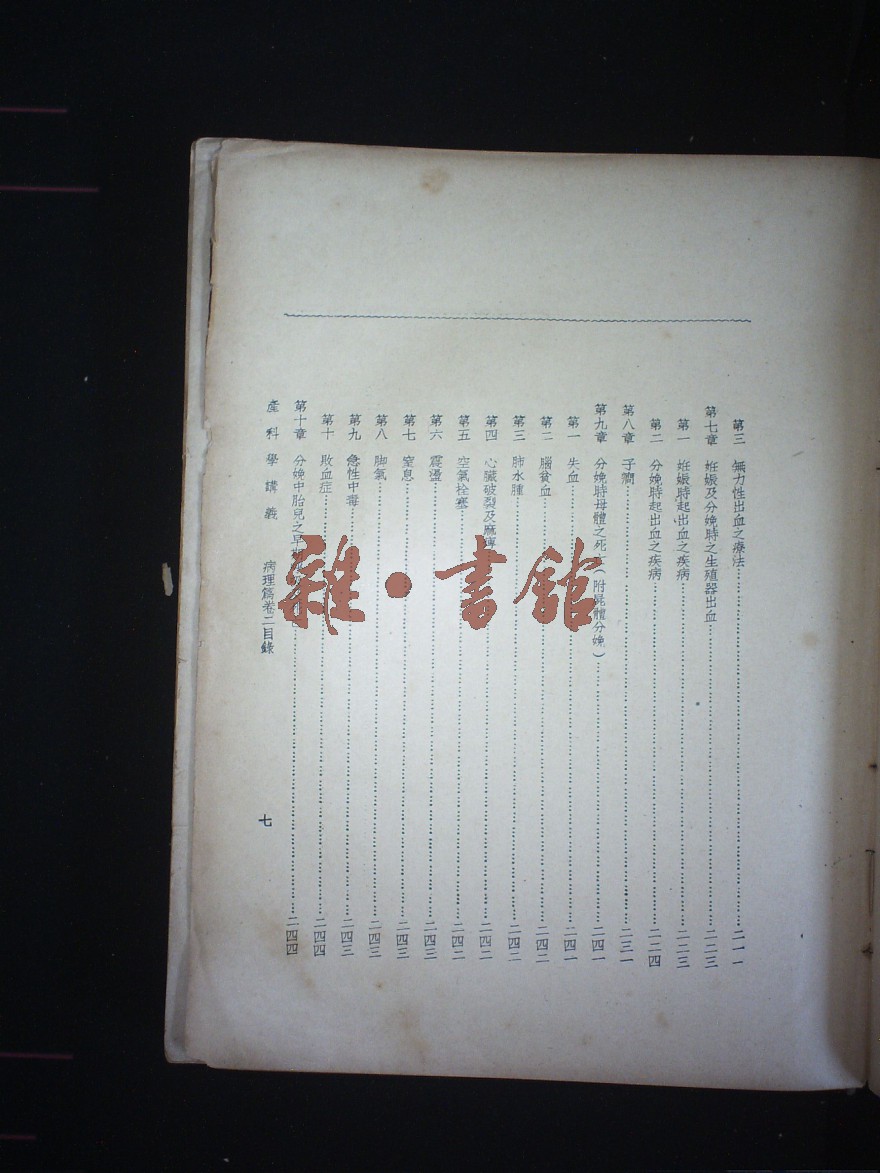 第三 無力性出血之療法……二一一
第七章 妊娠及分娩時之生殖器出血……二二三
第一 妊娠時起出血之疾病……二二三
第二 分娩時起出血之疾病……二二四
第八章 子癇……二三一
第九章 分娩時母體之死亡(附屍體分娩)……二四一
第一 失血……二四一
第二 腦貧血……二四二
第三 肺水腫……二四二
第四 心臟破裂及麻痺……二四二
第五 空氣栓塞……二四二
第六 震盪……二四三
第七 窒息……二四三
第八 脚氣……二四三
第九 急性中毒……二四三
第十 敗血症……二四四
第十章 分娩中胎兒之早……二四四
產科學講義 病理篇卷二目錄 七
雜·書館